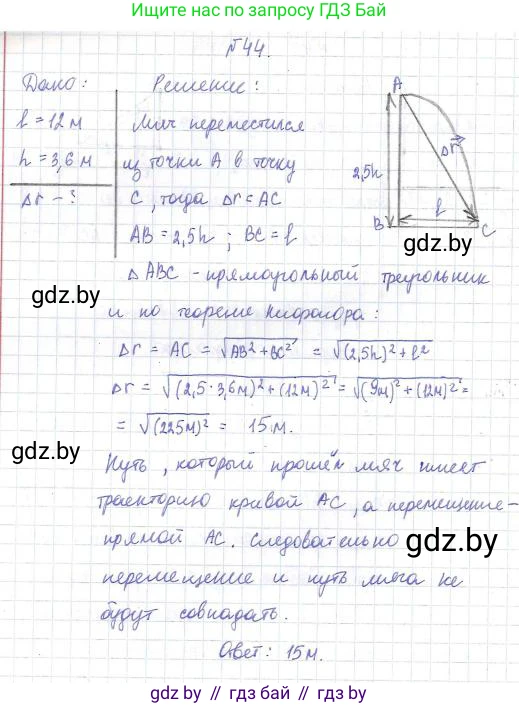 Ищите нас по запросу ГДЗ Бай
№44.
Дано:
Решение:
l = 12 м
h = 3,6 м
Δr - ?
Мяч переместился
из точки А в точку
С, тогда Δr = AC
AB = 2,5h ; BC = l
A
2,5h
Δr
B
l
C
gdz.by
Δ ABC - прямоугольный треугольник
gdz.by
и по теореме Пифагора:
Δr = AC = √AB² + BC² = √(2,5h)² + l²
Δr = √(2,5 · 3,6м)² + (12м)² = √(9м)² + (12м)² =
= √(225м)² = 15 м.
gdz.by
Путь, который прошёл мяч имеет
траекторию кривой AC, а перемещение -
прямой AC. Следовательно
gdz.by
перемещение и путь мяча не
будут совпадать.
Ответ: 15 м.
gdz.by // гдз бай // гдз.by